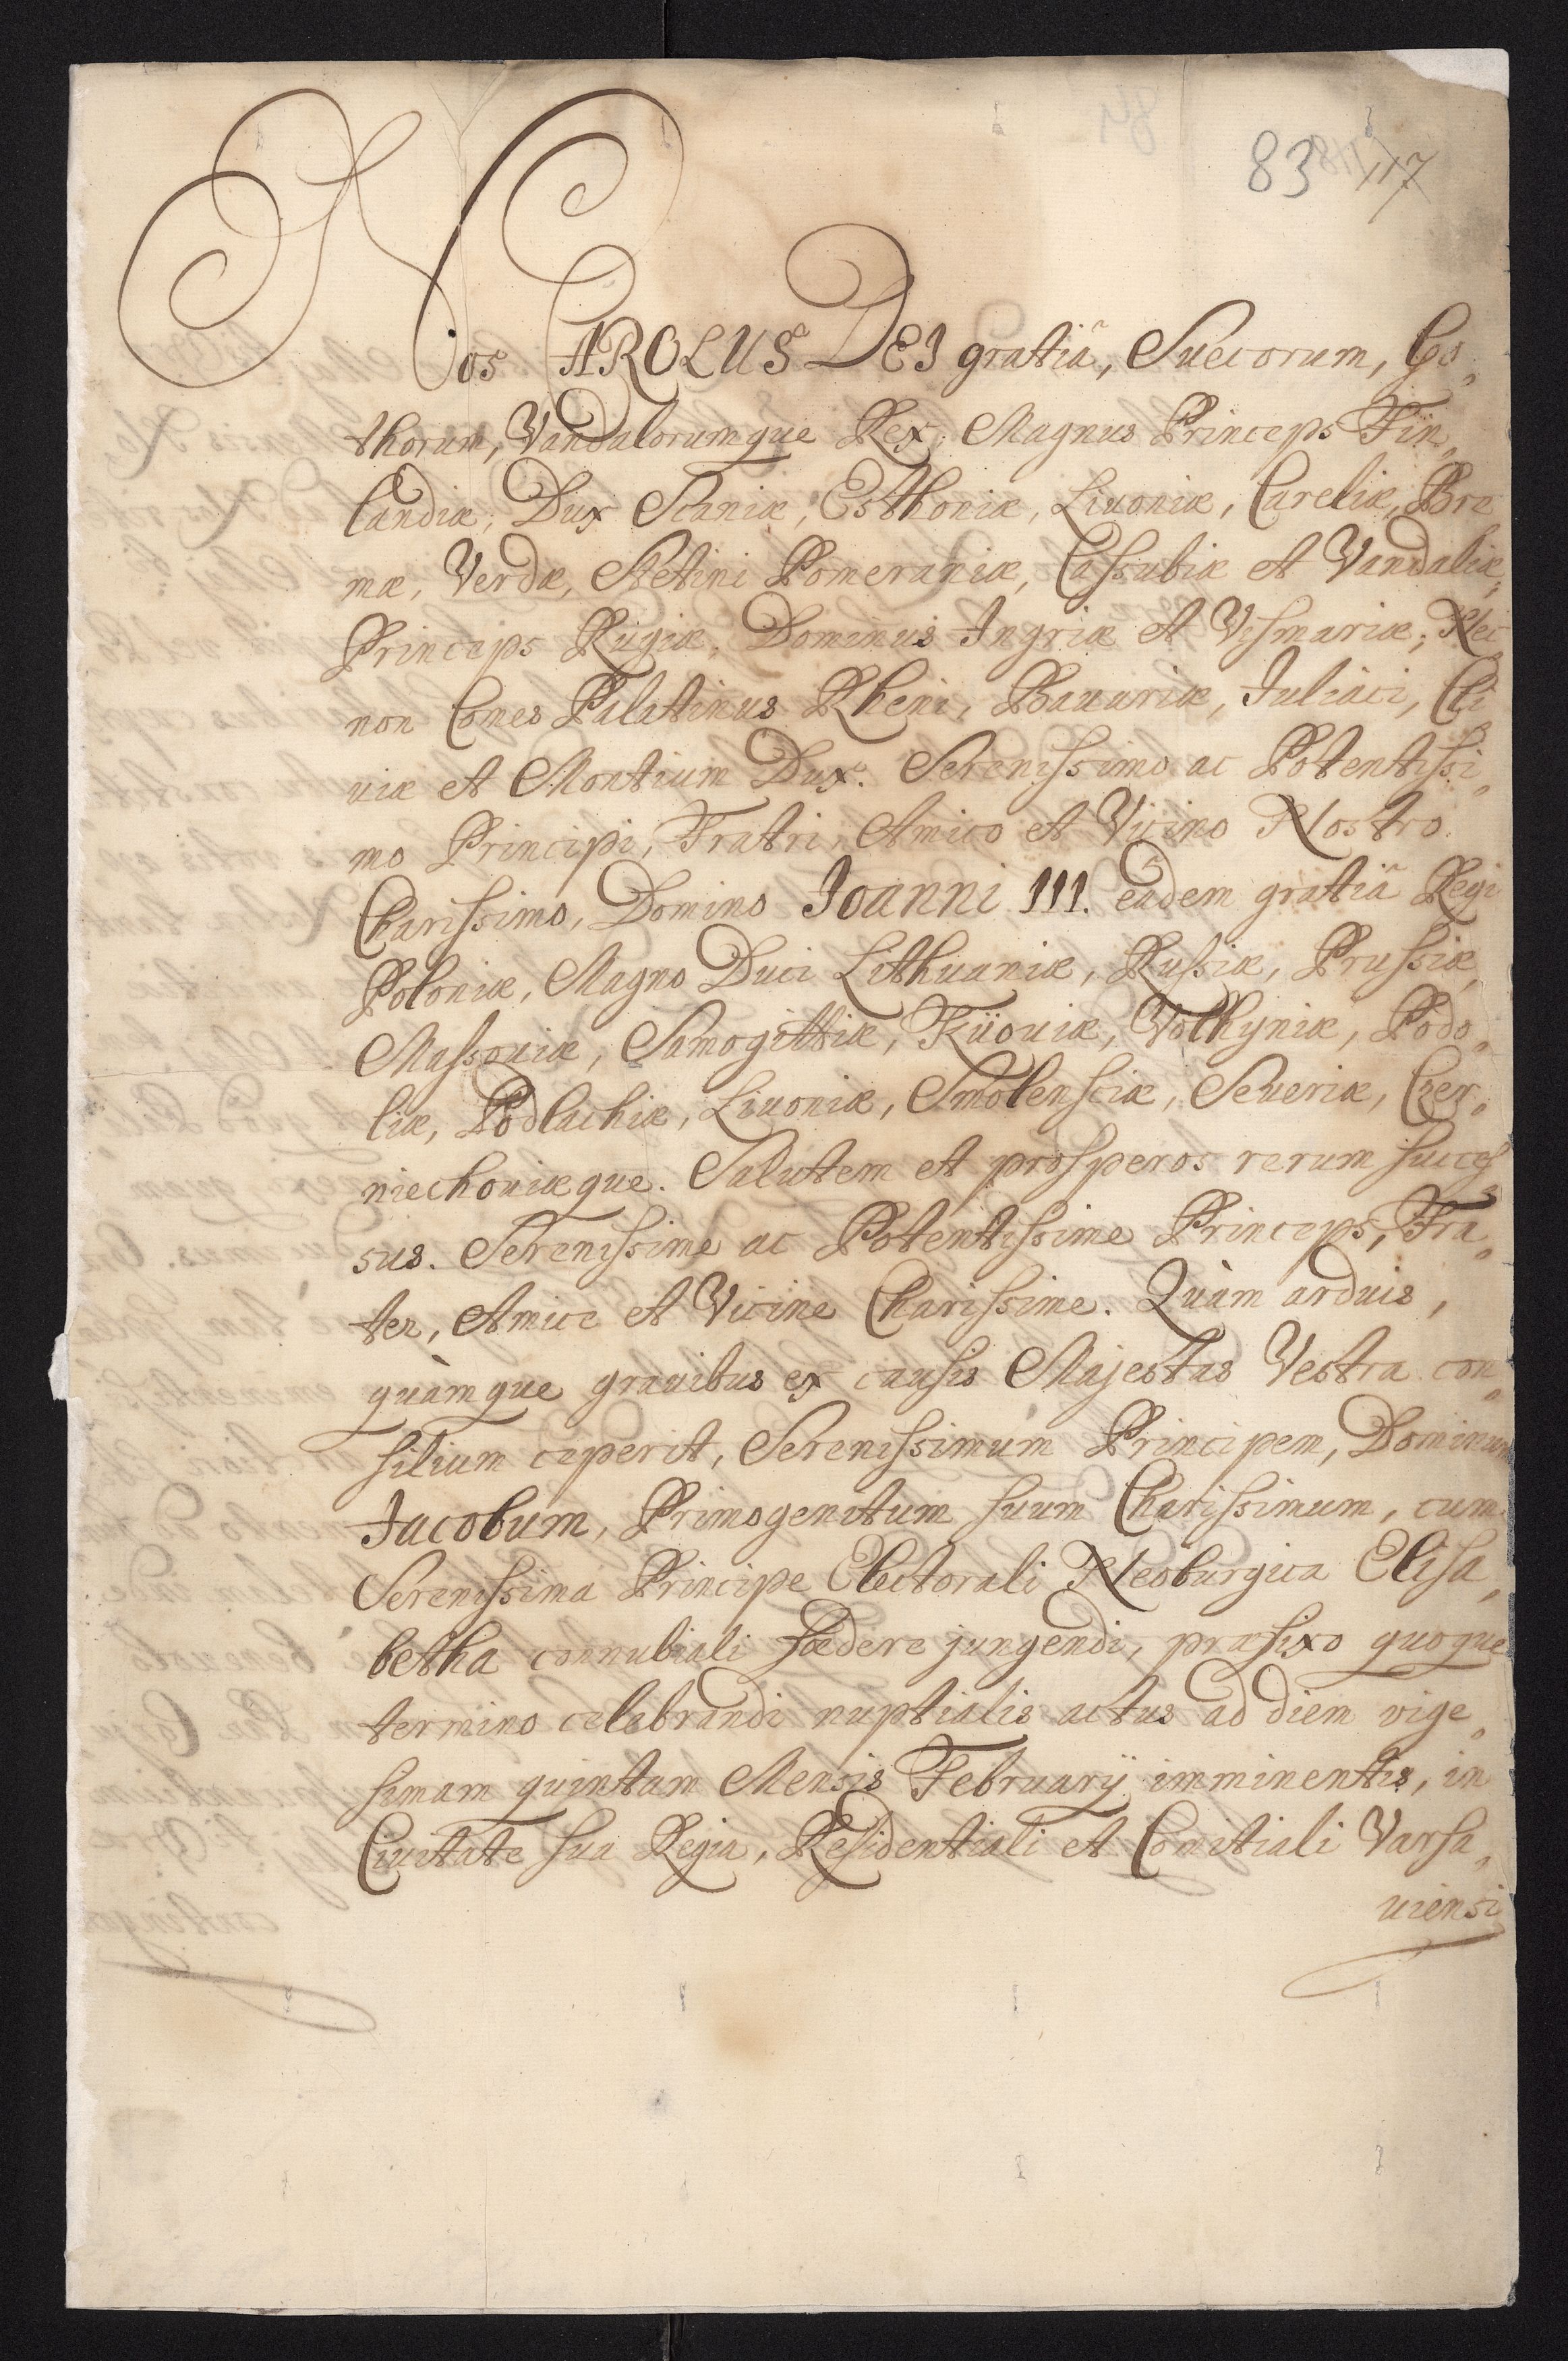 83 117
Nos CAROLUS DEI gratiâ, Suecorum, Go„
thorum, Vandalorumque Rex, Magnus Princeps Fin„
landiæ, Dux Scaniæ, Esthoniæ, Livoniæ, Careliæ, Bre„
mæ, Verdæ, Stetini Pomeraniæ, Cassubiæ et Vandaliæ,
Princeps Rugiæ, Dominus Ingriæ et Vismariæ; Nec
non Comes Palatinus Rheni, Bavariæ, Juliaci, Cli„
viæ et Montium Dux. Serenissimo ac Potentissi„
mo Principi, Fratri, Amico et Vicino Nostro
Charissimo, Domino Joanni III. eâdem gratiâ Regi
Poloniæ, Magno Duci Lithuaniæ, Russiæ, Prussiæ,
Massoviæ, Samogittiæ, Küoviæ, Volhyniæ, Podo„
liæ, Podlachiæ, Livoniæ, Smolensciæ, Severiæ, Czer„
niechoviæque. Salutem et prosperos rerum succes
sus. Serenissime ac Potentissime Princeps, Fra„
ter, Amice et Vicine Charissime. Quàm arduis,
quàmque gravibus ex causis Majestas Vestra con„
silium ceperit, Serenissimum Principem, Dominum
Jacobum, Primogenitum suum Charissimum, cum
Serenissima Principe Electorali Neoburgica Elisa„
betha connubiali fœdere jungendi, præfixo quoque
termino celebrandi nuptialis actus ad diem vige„
simam quintam Mensis Februarÿ imminentis, in
Civitate sua Regia, Residentiali et Comitiali Varsa„
viensi